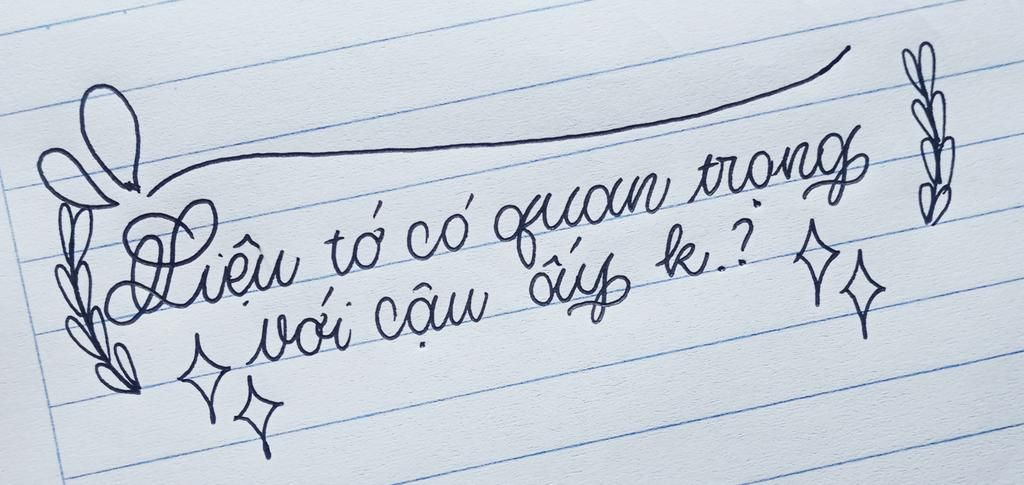 Liệu tớ có quan trọng
với cậu ấy k.?